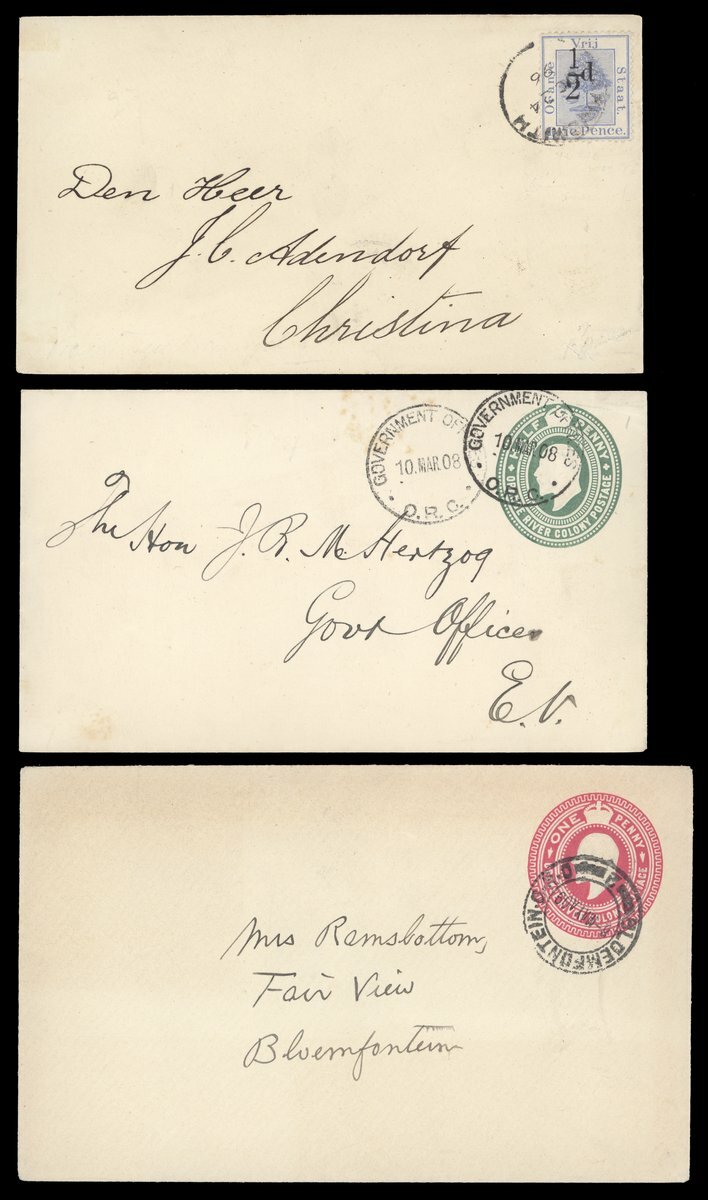 Vrij
Oranje
Staat.
1/2d
Pence.
Den Heer
J. C. Adendorf
Christina
GOVERNMENT
10.MAR.08
O.R.C.
GOVERNMENT
10.MAR.08
O.R.C.
HALF PENNY
RIVER COLONY POSTAGE
The Hon J. B. M. Hertzog
Govt Offices
E.V.
ONE PENNY
BLOEMFONTEIN O.R.C
Mrs Ramsbottom,
Fair View
Bloemfontein